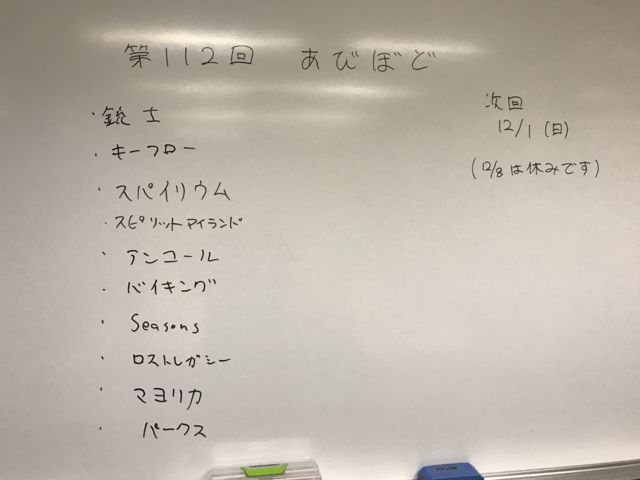 第112回 あびぼど
・銃士
・キーフロー
・スパイリウム
・スピリットアイランド
・アンコール
・バイキング
・Seasons
・ロストレガシー
・マヨリカ
・パークス
次回
12/1(日)
(12/8は休みです)